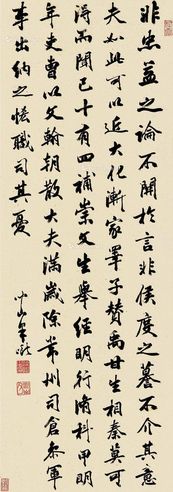 非忠益之論不聞於言非侯度之謩不介其意
夫如此可以近大化漸家睪子賛禹甘生相秦莫可
得而聞已十有四補崇文生舉經明行脩科甲明
年吏曹以文翰朝散大夫滿歲除常州司倉參軍
率出納之恡職司其憂